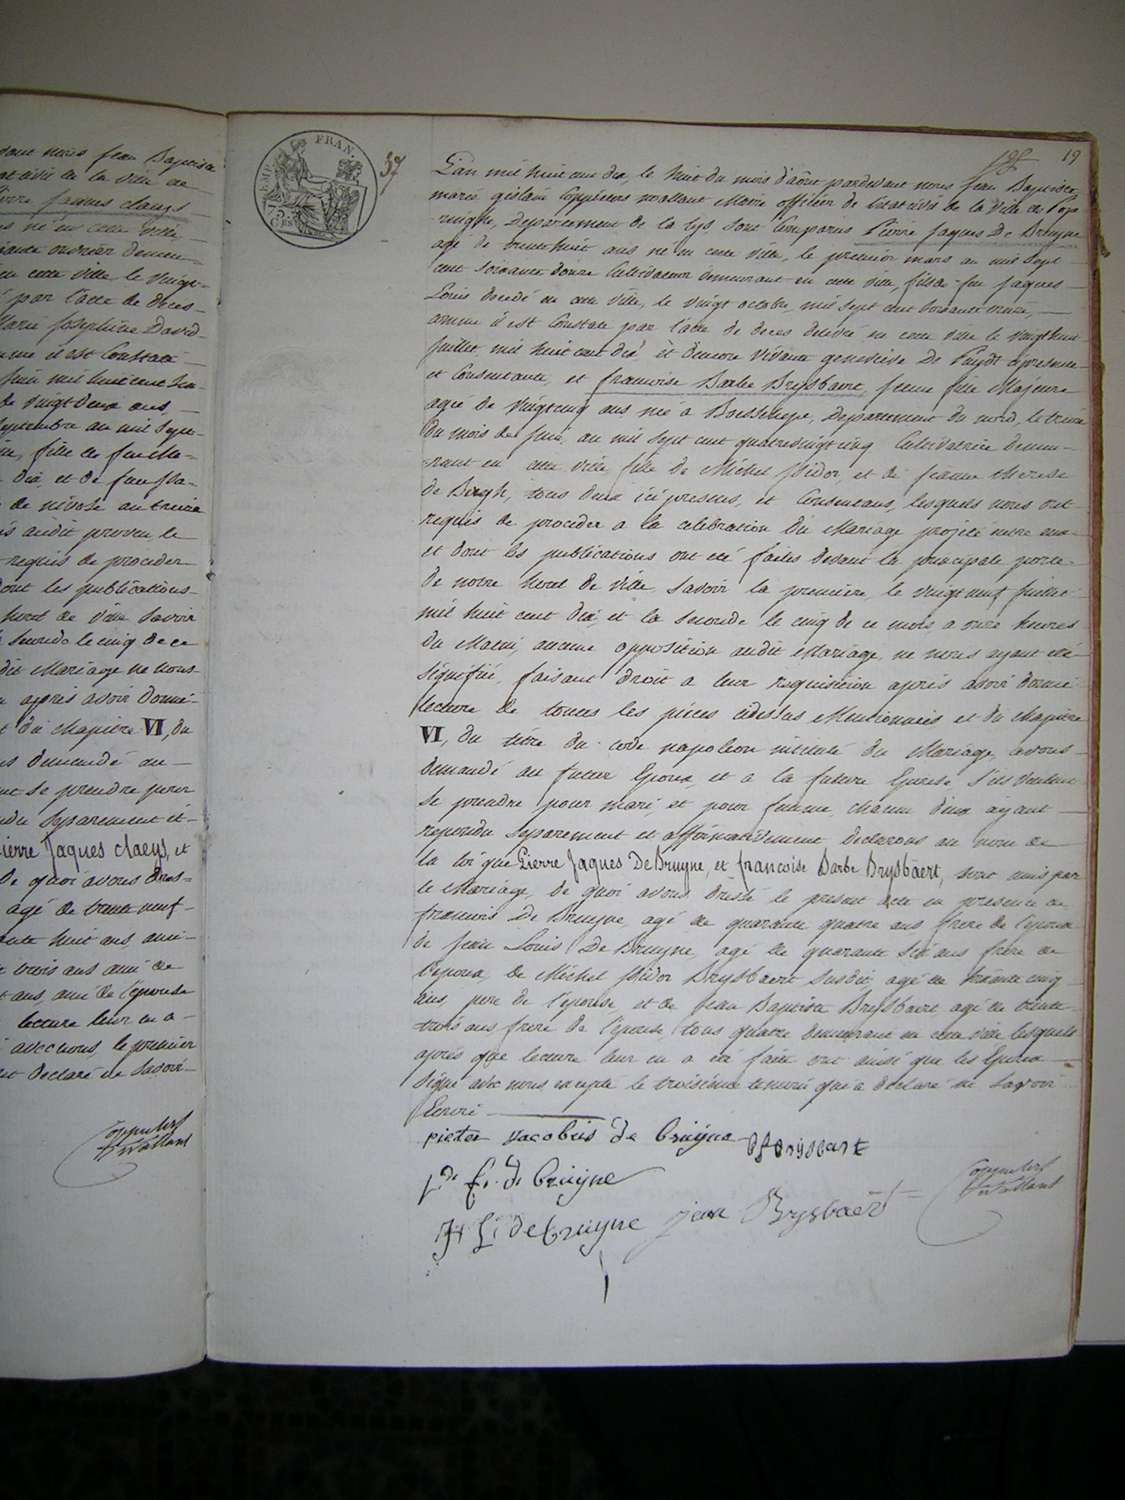 dant nous jean Baptiste
Pierre Jaques claeys
né en cette ville
ouvrier demeu-
en cette ville le vingt-
par l'acte de deces
Marie Josephine David
comme il est Constaté
juin mil huit cent
de vingt deux ans,
septembre au mil sept
fille de feu
dix, et de feu
de nivose au treize
audit proven le
requis de proceder
dont les publications
hotel de ville Savoir
seconde le cinq de ce
dit Mariage ne nous
après avoir donné
et du chapitre VI, du
demandé au
se prendre pour
separement et
Pierre Jaques claeys, et
De quoi avons dres-
agé de trente neuf
huit ans ami
trois ans ami de
ans, ami de l'epouse
lecture leur en a
avec nous, le premier
declaré ne Savoir
Coppiters
tWallant
EMP. FRAN.
75
Ces
37
19
L'an mil huit cent dix, le huit du mois d'août pardevant nous Jean Baptiste
marie gislain Coppieters wallant Maire officier de l'etat civil de la Ville de Pope
-ringhe, Departement de la Lys sont Comparus Pierre Jaques De Bruyne
agé de trente huit ans né en cette ville, le premier mars au mil sept
cent soixante douze Cultivateur demeurant en cette ville fils de feu Jaques
Louis decedé en cette ville, le vingt octobre, mil sept cent
comme il est Constaté par l'acte de deces delivré en cette ville le vingt huit
Juillet mil huit cent dix et d'encore vivante genevieve De Puydt cipresente
et Consentante, et francoise Barbe Brysbaert, jeune fille Majeure
agée de vingt cinq ans née à Boeschepe, Departement du nord, le treize
du mois de Juin, au mil sept cent quatrevingt cinq Cultivatrice demeu-
-rant en cette ville fille de Michel Isidor, et de jeanne therese
de Bergh, tous deux ici presens, et Consentans, lesquels nous ont
requis de proceder a la celebration du Mariage projeté entre eux
et dont les publications ont été faites devant la principale porte
de notre hotel de ville Savoir la premiere, le vingt neuf juillet
mil huit cent dix, et la seconde le cinq de ce mois a onze heures
du Matin, aucune opposition audit Mariage, ne nous ayant été
signifié, faisant droit a leur requisition après avoir donné
lecture de toutes les pièces cidessus Mentionnees et du chapitre
VI, du titre du code napoleon intitulé du Mariage, avons
demandé au futur Epoux, et a la future Epouse s'ils veulent
se prendre pour mari, et pour femme, chacun d'eux ayant
repondu separement et affirmativement, declarons au nom de
la loi que Pierre Jaques De Bruyne, et francoise Barbe Brysbaert, sont unis par
le Mariage, de quoi avons dressé le present acte en presence de
francois De Bruyne, agé de quarante quatre ans frere de l'epoux
de Jean Louis De Bruyne, agé de quarante six ans frère de
l'epoux, de Michel Isidor Brysbaert susdit, agé de cinq
ans, pere de l'epouse, et de Jean Baptiste Brysbaert agé de trente
trois ans frere de l'epouse, tous quatre demeurant en cette ville lesquels
après que lecture leur en a été faite ont aussi que les Epoux
signé avec nous excepté le troisieme temoin qui a declaré ne Savoir
Ecrire
pieter jacobus de bruyne Brijsbart
f. de bruyne
J L de bruyne jean Brysbaert
Coppiters
tWallant